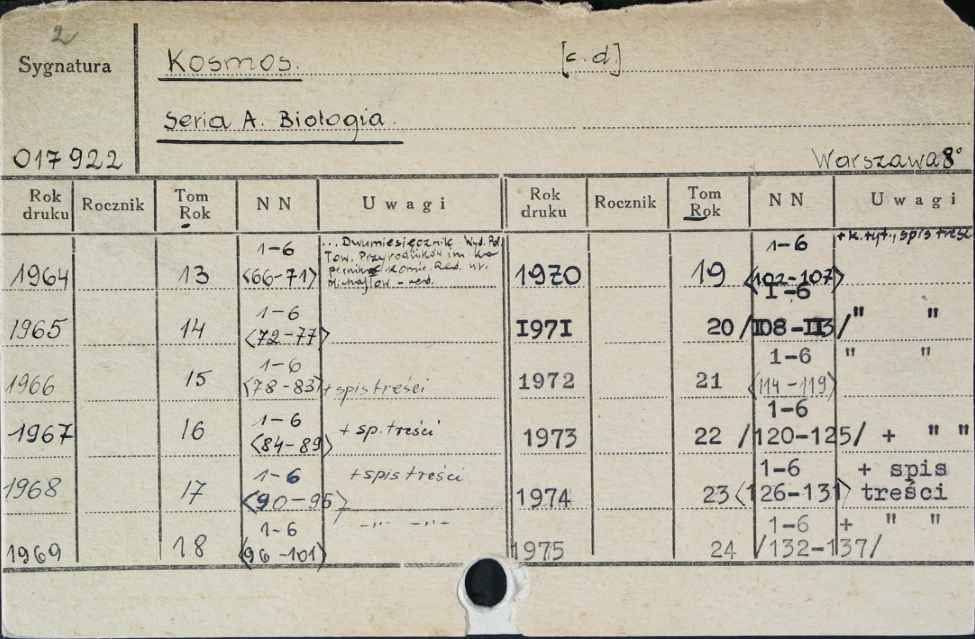 2
Sygnatura
Kosmos. [c.d.]
Seria A. Biologia.
017922
Warszawa 8°
Rok druku Rocznik Tom Rok NN Uwagi Rok druku Rocznik Tom Rok NN Uwagi
1964 13 1-6 <66-71>
... Dwumiesięcznik Wyd. Pol.
Tow. Przyrodników im. Ko
pernika Red.
1965 14 1-6 <72-77>
1966 15 1-6 <78-83> + spis treści
1967 16 1-6 <84-89> + sp. treści
1968 17 1-6 <90-95> + spis treści
1969 18 1-6 <96-101> -„- -„-
1970 19 1-6 <102-107> + k. tyt., spis treśc
1971 20 1-6 /108-113/ " "
1972 21 1-6 <114-119> " "
1973 22 1-6 /120-125/ + " "
1974 23 1-6 <126-131> + spis treści
1975 24 1-6 /132-137/ + " "